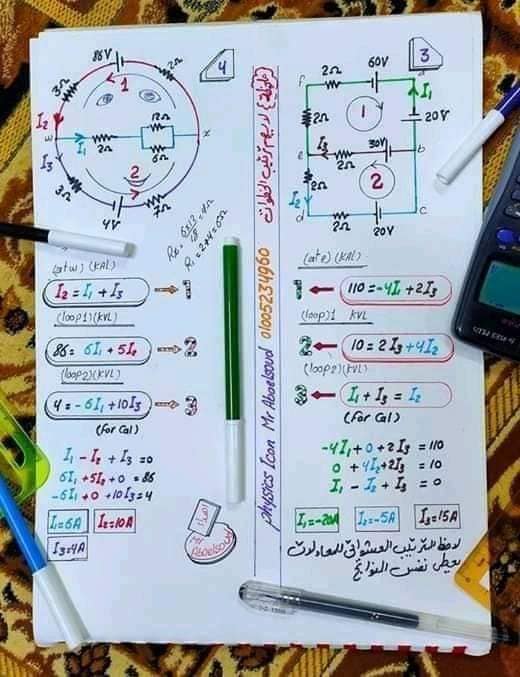 4
86V
2Ω
3Ω
1
I₂
12Ω
w
I₁
2Ω
6Ω
x
I₃
2
3Ω
4V
7Ω
(at w) (KCL)
I₂ = I₁ + I₃ → 1
(loop1) (KVL)
86 = 6I₁ + 5I₂ → 2
(loop2) (KVL)
4 = -6I₁ + 10I₃ → 3
(for Cal)
I₁ - I₂ + I₃ = 0
6I₁ + 5I₂ + 0 = 86
-6I₁ + 0 + 10I₃ = 4
I₁=6A
I₂=10A
I₃=4A
Mr
Aboelsoud
physics Icon Mr Aboelsoud 01005234960
3
60V
2Ω
f
I₁
2Ω
1
20V
I₃
30V
e
b
2Ω
2Ω
2
I₂
d
2Ω
c
20V
1 ← 110 = -4I₁ + 2I₃
(loop)1 KVL
2 ← 10 = 2I₃ + 4I₂
(loop2) KVL
3 ← I₁ + I₃ = I₂
(for Cal)
-4I₁ + 0 + 2I₃ = 110
0 + 4I₂ + 2I₃ = 10
I₁ - I₂ + I₃ = 0
I₁=-20A
I₂=-5A
I₃=15A
لاحظ الترتيب العشوائى للمعادلات
يعطى نفس النواتج